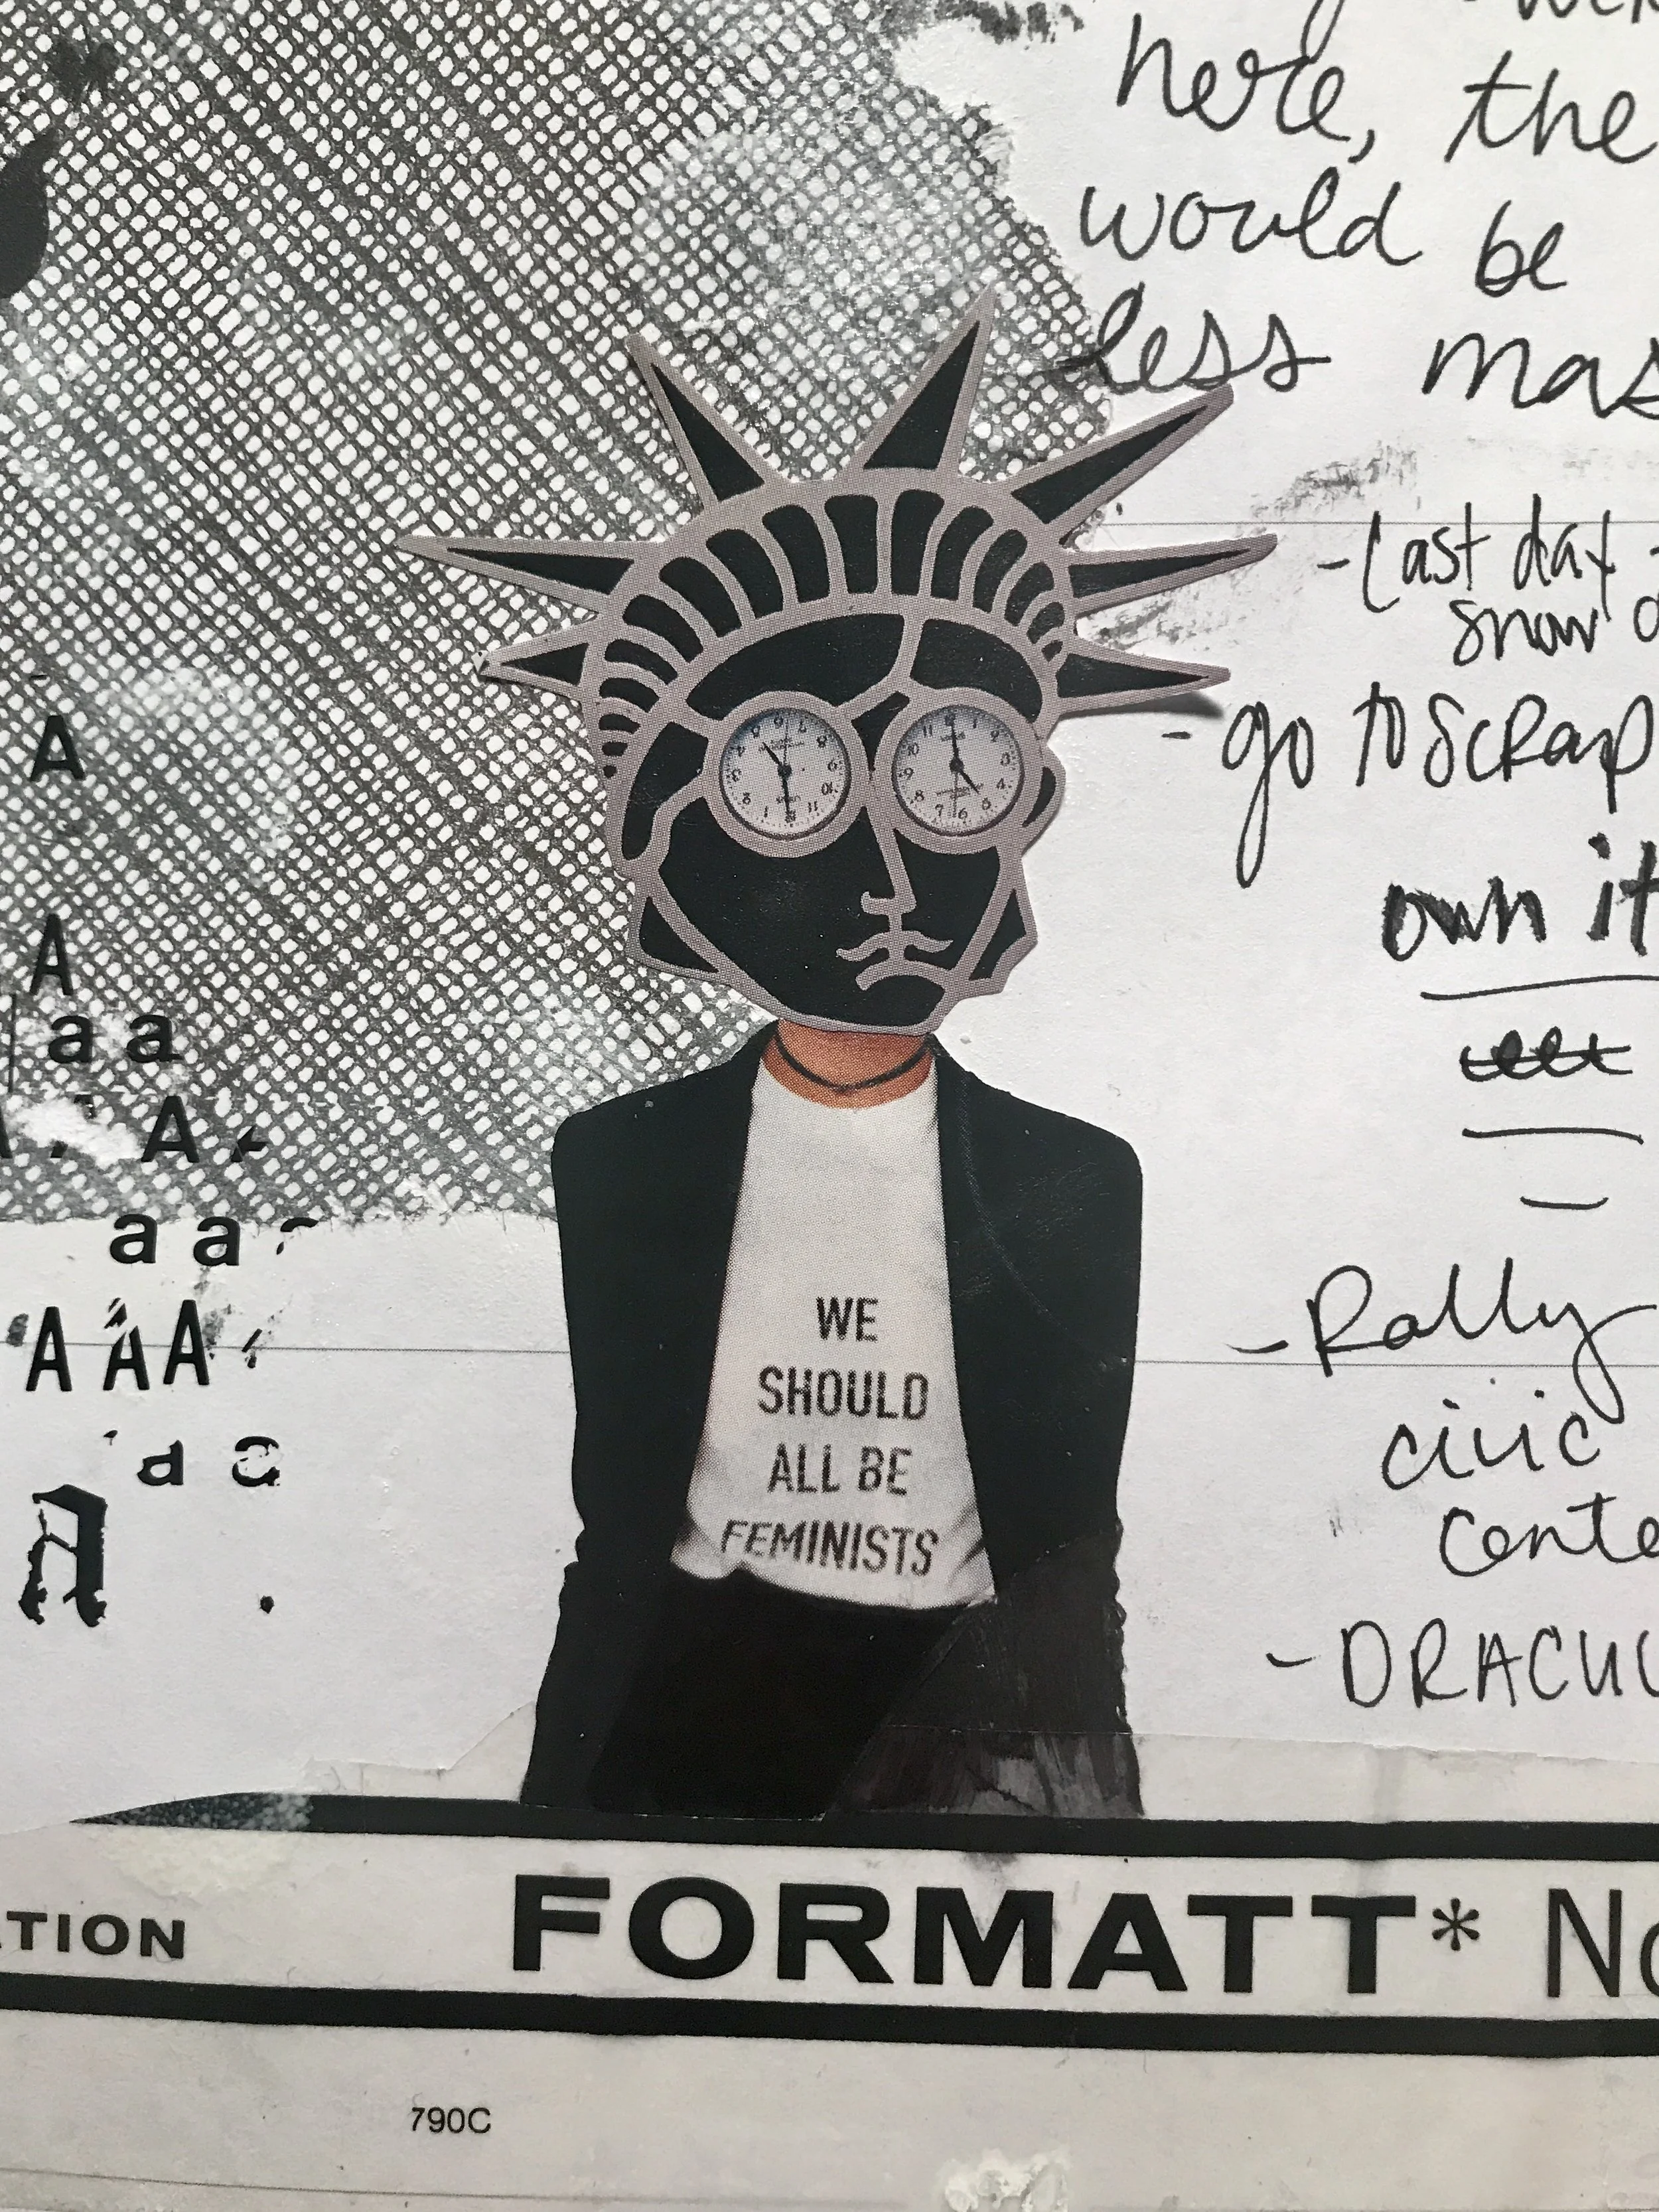 here, the
would be
less mas
-last day -
snow
- go to SCRap
own it
- Rally
civic
cente
- DRACUL
A
A
a a
A
a a
A A A
a a
A
WE
SHOULD
ALL BE
FEMINISTS
ATION FORMATT* No
790C